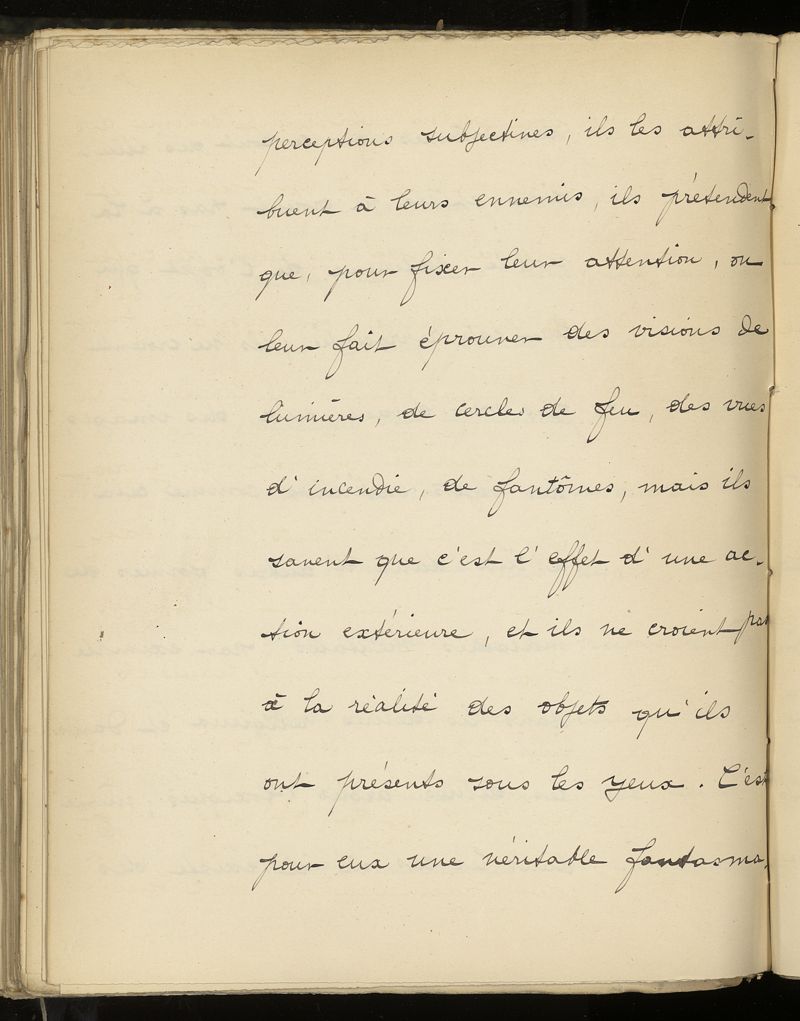 perceptions subjectives, ils les attri-
buent à leurs ennemis, ils prétendent
que, pour fixer leur attention, on
leur fait éprouver des visions de
lumières, de cercles de feu, des vues
d'incendie, de fantômes, mais ils
savent que c'est l'effet d'une ac-
tion extérieure, et ils ne croient pas
à la réalité des objets qu'ils
ont présents sous les yeux. C'est
pour eux une véritable fantasma-